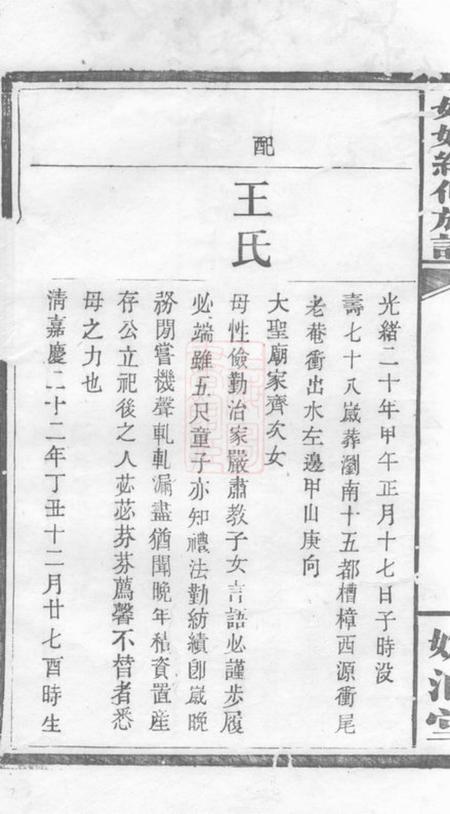 光緒二十年甲午正月十七日子時没
壽七十八嵗葬瀏南十五都槽樟西源衝尾
老菴衝出水左邊甲山庚向
配
王氏
大聖廟家齊次女
母性儉勤治家嚴肅教子女言語必謹步履
必端雖五尺童子亦知禮法勤紡績卽嵗晚
務閒嘗機聲軋軋漏盡猶聞晚年私資置產
存公立祀後之人苾苾芬芬薦馨不替者悉
母之力也
清嘉慶二十二年丁丑十二月廿七酉時生